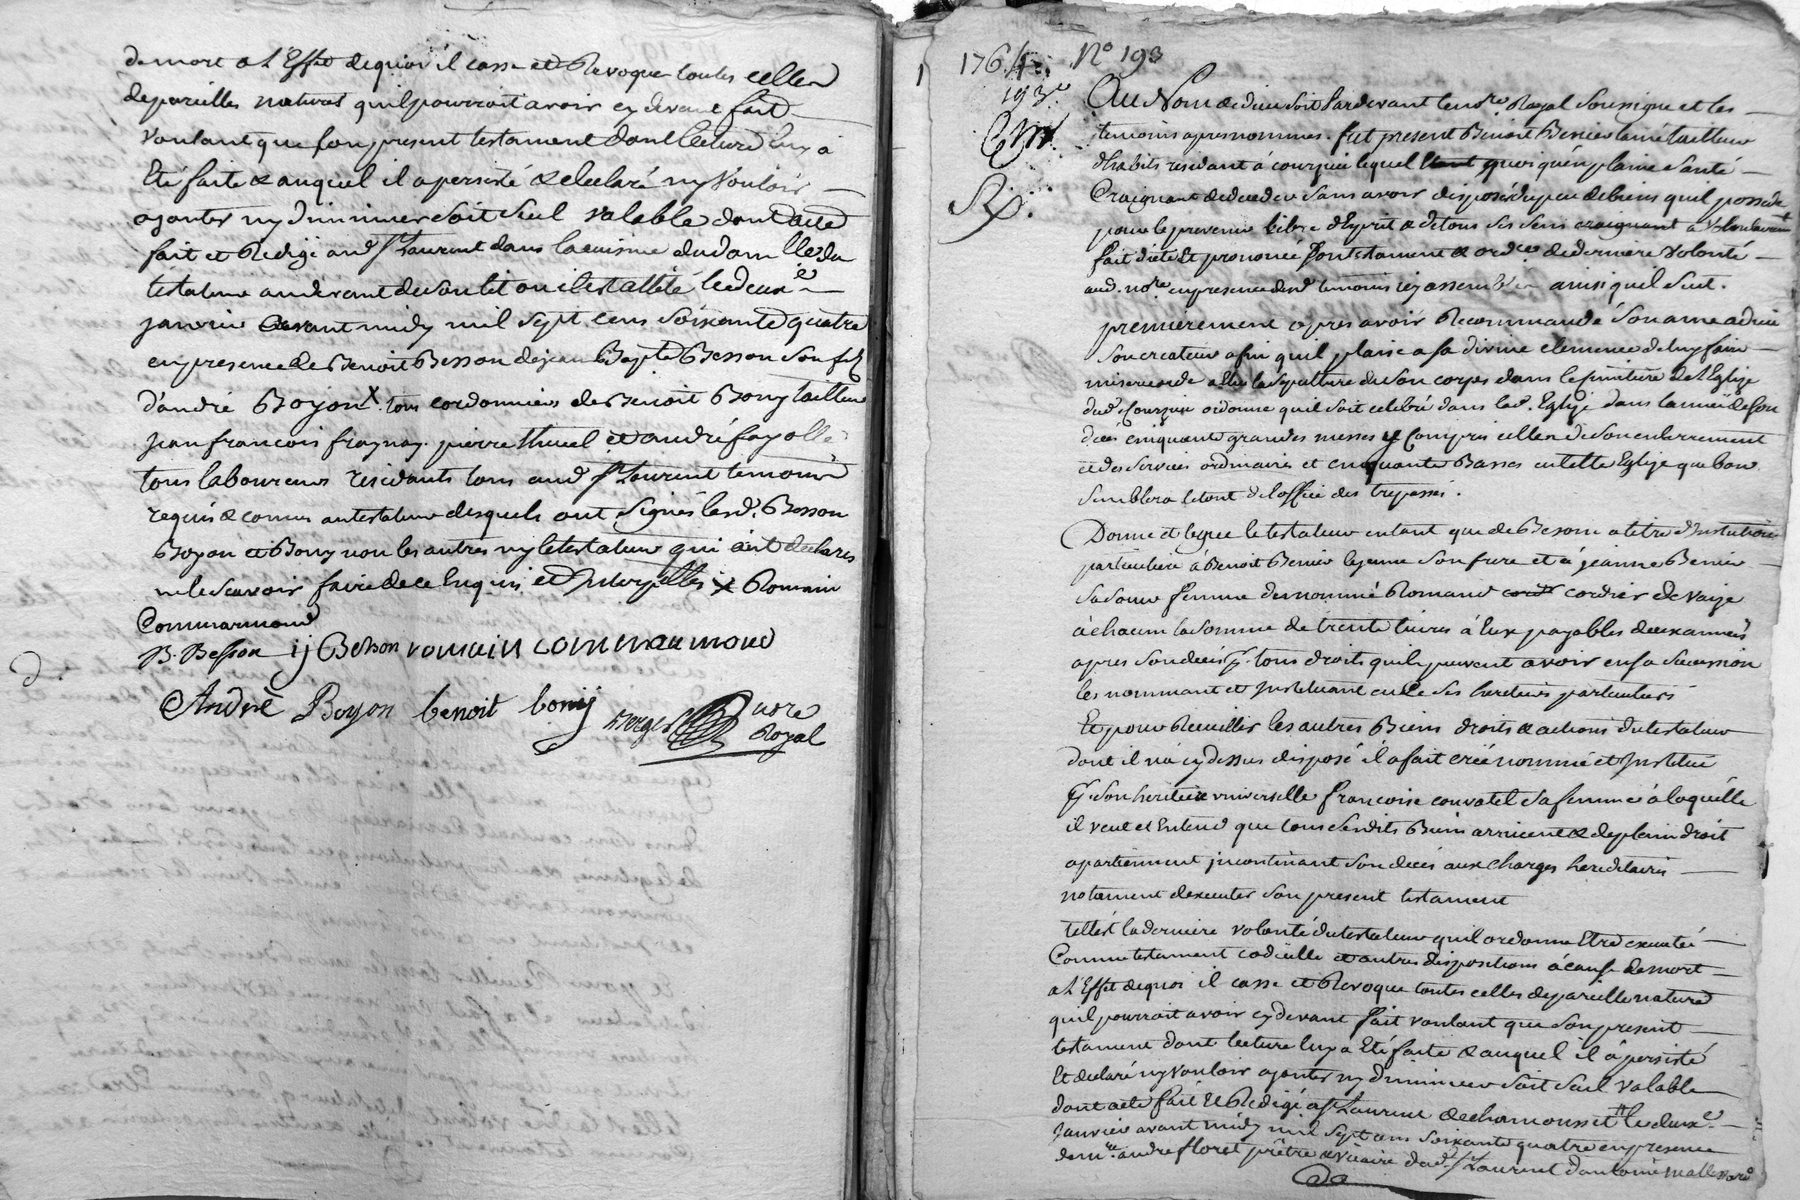 de mort a l'Effet de quoi il casse et Revoque toutes celles
de pareilles natures qu'il pourroit avoir cy devant fait
voulant que son present testament dont lecture luy a
Eté faite & auquel il a persisté & declaré ny vouloir
ajouter ny diminuer soit seul valable dont acte
fait et Redigé aud. st Laurent dans la cuisine du dom lle du
testateur au devant de son lit ou il est allité le deuxe
janvier avant midy mil sept cens soixante quatre
en presence de Benoit Besson de jean Bapte Besson son fils
d'andré Boyon x tous cordonniers de Benoit Bony tailleur
jean francois fragnay pierre thuel et andré fayolle
tous laboureurs residants tous aud st Laurent temoins
requis & connus au testateur desquels ont signés lesd. Besson
Boyon et Bony non les autres ny le testateur qui ont declarés
ne le scavoir faire de ce Enquis et Interpellés x Romain
Commarmond
B. Besson ij Besson romain commarmond
André Boyon benoit bonij nore
Royal
1764 No 193
193e
Au Nom de dieu soit Pardevant le nore Royal soussigné et les
temoins apres nommés. fut present Benoit Bernier lainé tailleur
d'habits residant à courzieu lequel quoiqu'en plaine santé
Craignant de deceder sans avoir disposé du peu de biens qu'il possede
pour le prevenir libre d'Esprit & de tous ses sens craignant a volontairement
fait dicté et prononcé son testament & ordce de derniere volonté
aud. nore en presence desd temoins icy assemblés ainsi quil suit.
premierement apres avoir Recommandé son ame a dieu
son createur afin quil plaise a sa divine clemence de luy faire
misericorde a Elu la sepulture de son corps dans le cimetiere de l'Eglise
dud. Courzieu ordonne qu'il soit celebré dans lad. Eglise dans lannée de son
decés cinquante grandes messes y Compris celles de son enterrement
et des services ordinaires et cinquante Basses en telle Eglise que bon
semblera le tout de l'office des trepassés.
Donne et legue le testateur entant que de Besoin a titre d'Institution
particuliere à Benoit Bernier le jeune son frere et à jeanne Bernier
sa soeur femme du nommé Romand cordier de vaize
à chacun la somme de trente livres à Eux payables deux années
apres son decés p. tous droits qu'ils peuvent avoir en sa succession
les nommant et Instituant en ce ses heritiers particuliers
Et pour Recueillir les autres Biens droits & actions du testateur
dont il n'a cy dessus disposé il a fait créé nommé et Institué
p. son heritiere universelle francoise couvatel sa femme à laquelle
il veut et Entend que tous sesdits Biens arrivent & de plein droit
apartiennent incontinant son decés aux charges hereditaires
notament d'executer son present testament
telle est la derniere volonté du testateur qu'il ordonne Etre executée
Comme testament codicille et autres dispositions à cause de mort
a l'Effet de quoi il casse et Revoque toutes celles de pareille nature
qu'il pourroit avoir cy devant fait voulant que son present
testament dont lecture luy a Eté faite & auquel il à persisté
Et declaré ny vouloir ajouter ny diminuer soit seul valable
dont acte fait et Redigé a st Laurent de chamousset le deuxe
Janvier avant midy mil sept cens soixante quatre en presence
de mre andre floret prêtre & vicaire dud. st Laurent d'antoine